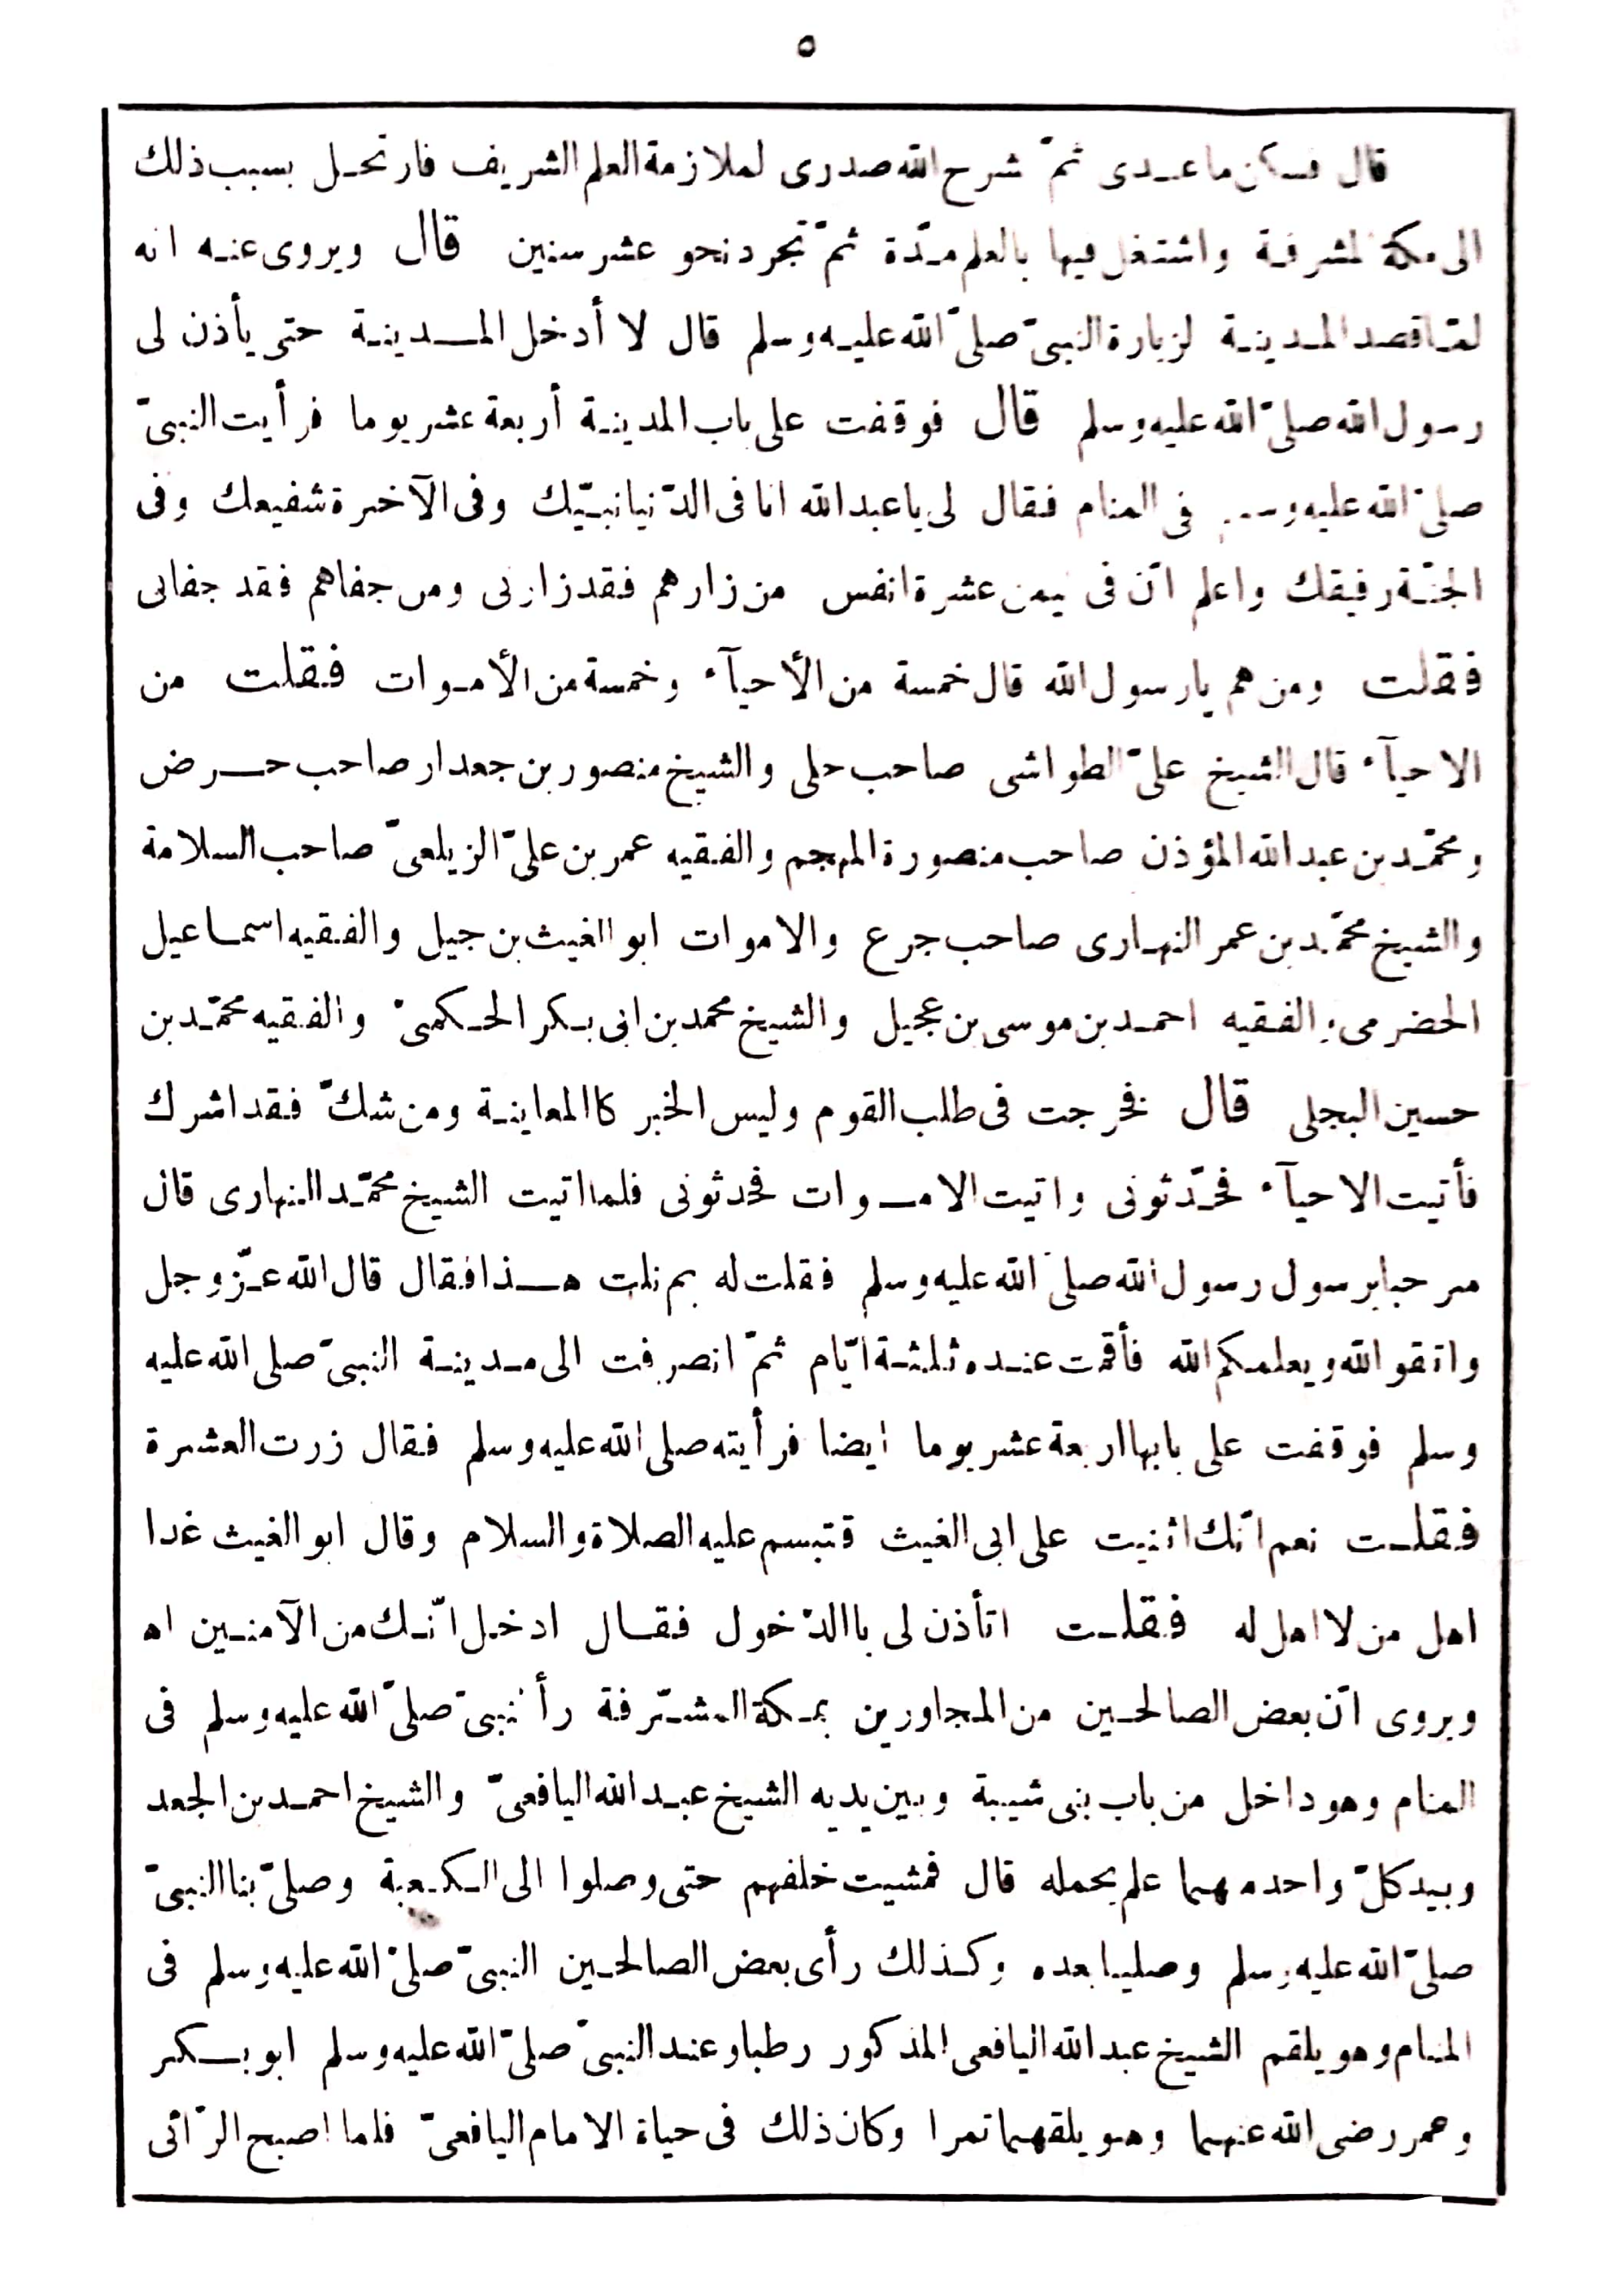 ٥
قال فسكن ما عندى ثمّ شرح الله صدرى لملازمة العلم الشريف فارتحل بسبب ذلك
الى مكة المشرفة واشتغل فيها بالعلم مدّة ثمّ تجرد نحو عشر سنين قال ويروى عنه انه
لمّا قصد المدينة لزيارة النبىّ صلىّ الله عليه وسلم قال لا أدخل المدينة حتى يأذن لى
رسول الله صلىّ الله عليه وسلم قال فوقفت على باب المدينة أربعة عشر يوما فرأيت النبىّ
صلىّ الله عليه وسلم فى المنام فقال لى يا عبد الله انا فى الدّنيا نبيّك وفى الآخرة شفيعك وفى
الجنّة رفيقك واعلم انّ فى يمن عشرة انفس من زارهم فقد زارنى ومن جفاهم فقد جفانى
فقلت ومن هم يا رسول الله قال خمسة من الأحيآء وخمسة من الأموات فقلت من
الاحيآء قال الشيخ علىّ الطواشى صاحب حلى والشيخ منصور بن جعدار صاحب حرض
ومحمّد بن عبد الله المؤذن صاحب منصورة المهجم والفقيه عمر بن علىّ الزيلعىّ صاحب السلامة
والشيخ محمّد بن عمر النهارى صاحب جرع والاموات ابو الغيث بن جيل والفقيه اسماعيل
الحضرمى والفقيه احمد بن موسى بن عجيل والشيخ محمد بن ابى بكر الحكمىّ والفقيه محمّد بن
حسين البجلى قال فخرجت فى طلب القوم وليس الخبر كاالمعاينة ومن شكّ فقد اشرك
فأتيت الاحيآء فحدّثونى واتيت الاموات فحدثونى فلما اتيت الشيخ محمّد النهارى قال
مرحبا برسول رسول الله صلىّ الله عليه وسلم فقلت له بم نلت هذا فقال قال الله عزّ وجل
واتقو الله ويعلمكم الله فأقمت عنده ثلثة ايّام ثمّ انصرفت الى مدينة النبىّ صلى الله عليه
وسلم فوقفت على بابها اربعة عشر يوما ايضا فرأيته صلى الله عليه وسلم فقال زرت العشرة
فقلت نعم انّك اثنيت على ابى الغيث فتبسم عليه الصلاة والسلام وقال ابو الغيث غدا
اهل من لا اهل له فقلت اتأذن لى باالدّخول فقال ادخل انّك من الآمنين اه
ويروى انّ بعض الصالحين من المجاورين بمكة المشرّفة رأ نبىّ صلىّ الله عليه وسلم فى
المنام وهو داخل من باب بنى شيبة وبين يديه الشيخ عبد الله اليافعىّ والشيخ احمد بن الجعد
وبيد كلّ واحد مهما علم يحمله قال فمشيت خلفهم حتى وصلوا الى الكعبة وصلىّ بنا النبىّ
صلىّ الله عليه وسلم وصليا بعده وكذلك رأى بعض الصالحين النبىّ صلىّ الله عليه وسلم فى
المنام وهو يلقم الشيخ عبد الله اليافعى المذكور رطبا وعند النبىّ صلىّ الله عليه وسلم ابو بكر
وعمر رضى الله عنهما وهو يلقهما تمرا وكان ذلك فى حياة الامام اليافعىّ فلما اصبح الرّائى